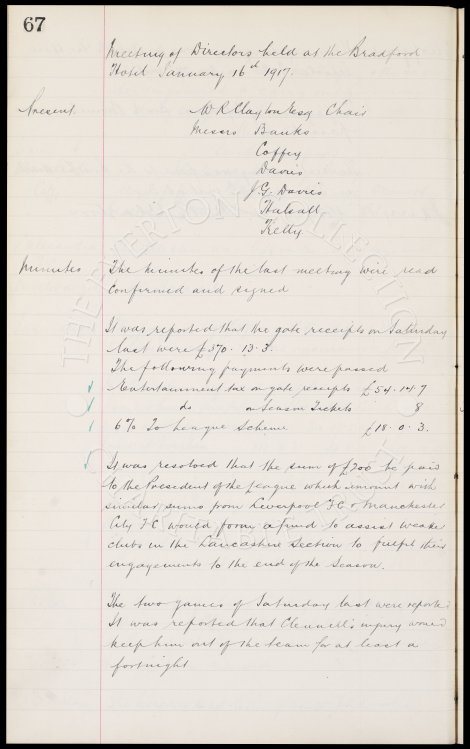 67
Meeting of Directors held at the Bradford
Hotel January 16th 1917.
Present W R Clayton Esq Chair
Messrs Banks
Coffey
Davies
J. G. Davies
Halsall
Kelly
Minutes The Minutes of the last meeting were read
confirmed and signed
It was reported that the gate receipts on Saturday
last were £370. 13. 3.
The following payments were passed
Entertainment tax on gate receipts £54. 14. 7
do on Season Tickets 8
6% To League Scheme £18. 0. 3.
It was resolved that the sum of £200 be paid
to the President of the League which amount with
similar sums from Liverpool F C & Manchester
City F C would form a fund to assist weaker
clubs in the Lancashire Section to fulfil their
engagements to the end of the Season.
The two games of Saturday last were reported
It was reported that Clennell's injury would
keep him out of the team for at least a
fortnight
THE EVERTON COLLECTION